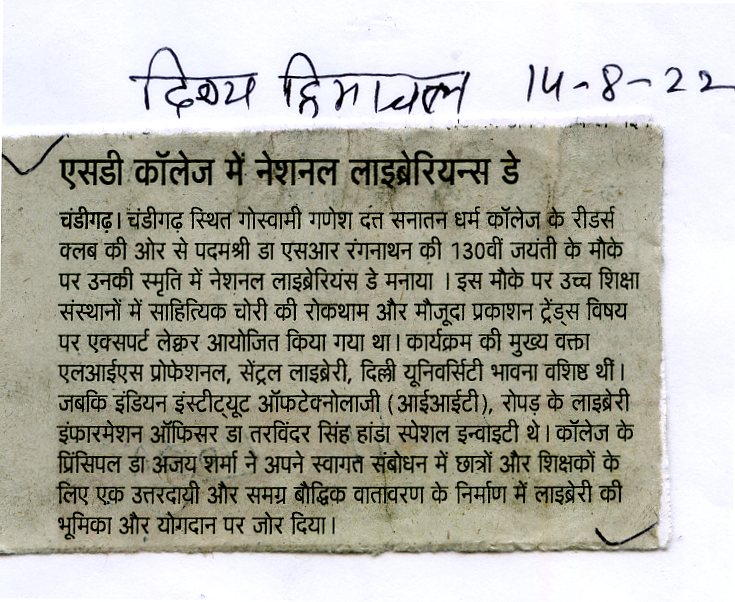 दिव्य हिमाचल 14-8-22
एसडी कॉलेज में नेशनल लाइब्रेरियन्स डे
चंडीगढ़। चंडीगढ़ स्थित गोस्वामी गणेश दत्त सनातन धर्म कॉलेज के रीडर्स
क्लब की ओर से पदमश्री डा एसआर रंगनाथन की 130वीं जयंती के मौके
पर उनकी स्मृति में नेशनल लाइब्रेरियंस डे मनाया । इस मौके पर उच्च शिक्षा
संस्थानों में साहित्यिक चोरी की रोकथाम और मौजूदा प्रकाशन ट्रेंड्स विषय
पर एक्सपर्ट लेक्चर आयोजित किया गया था। कार्यक्रम की मुख्य वक्ता
एलआईएस प्रोफेशनल, सेंट्रल लाइब्रेरी, दिल्ली यूनिवर्सिटी भावना वशिष्ठ थीं।
जबकि इंडियन इंस्टीट्यूट ऑफटेक्नोलाजी (आईआईटी), रोपड़ के लाइब्रेरी
इंफारमेशन ऑफिसर डा तरविंदर सिंह हांडा स्पेशल इन्वाइटी थे। कॉलेज के
प्रिंसिपल डा अजय शर्मा ने अपने स्वागत संबोधन में छात्रों और शिक्षकों के
लिए एक उत्तरदायी और समग्र बौद्धिक वातावरण के निर्माण में लाइब्रेरी की
भूमिका और योगदान पर जोर दिया।